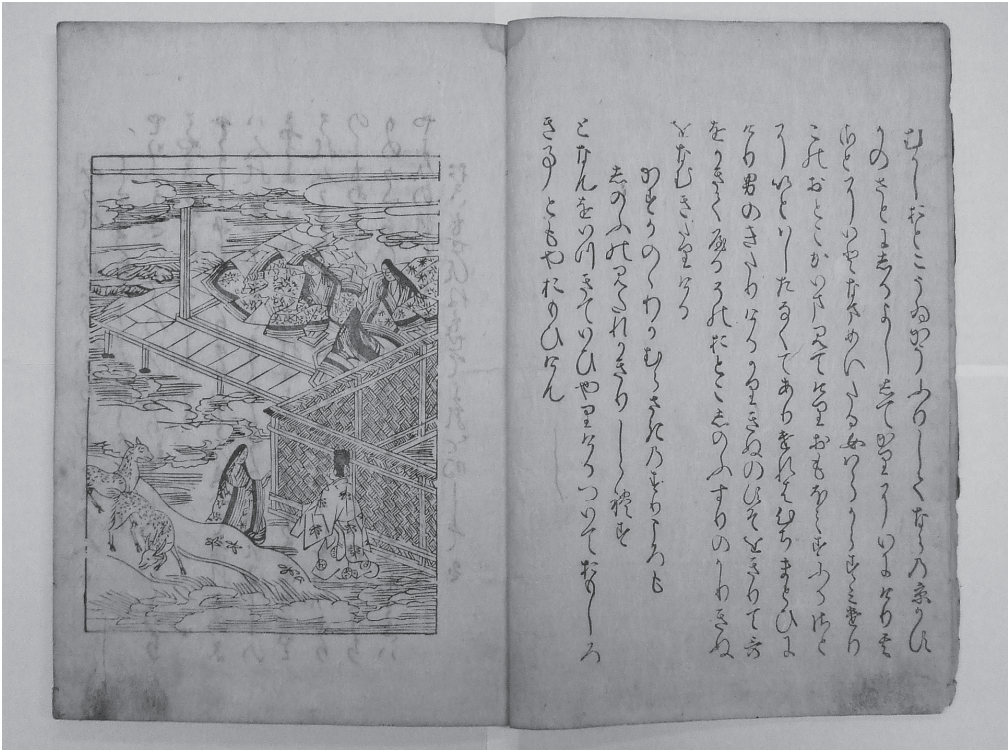 むかしおとこうゐかうふりしてならの京かす
かのさとにしるよししてかりにいにけりそ
のさとにいとなまめいたる女はらからすみけり
このおとこかいまみてけりおもほえすふるさと
にいとはしたなくてありけれはこゝちまとひに
けり男のきたりけるかりきぬのすそをきりて哥
をかきてやるそのおとこしのふすりのかりきぬ
をなむきたりける
かすかのゝわかむらさきのすりころも
しのふのみたれかきりしられす
となんをいつきていひやりけるついておもしろ
き事ともやおもひけん